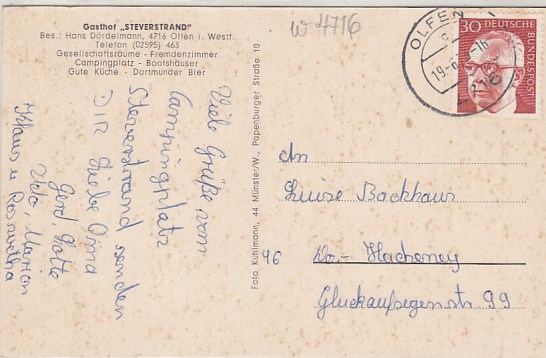 Gasthof „STEVERSTRAND"
Bes.: Hans Dördelmann, 4716 Olfen i. Westf.
Telefon (02595) 463
Gesellschaftsräume - Fremdenzimmer
Campingplatz - Bootshäuser
Gute Küche. - Dortmunder Bier
w 4716
OLFEN
19-6
30 DEUTSCHE BUNDESPOST
Viele Grüße vom
Campingplatz
Steverstrand senden
Dir liebe Oma
Gerd, Lotte
Udo, Marion
Klaus u Roswitha
Foto Kuhlmann, 44 Münster/W., Papenburger Straße 10
An
Luise Backhaus
46 Do.- Hacheney
Glückaufsegenstr. 99